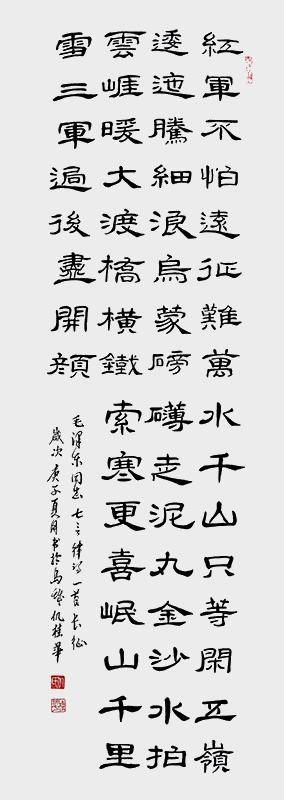 紅軍不怕遠征難萬水千山只等閑五嶺
逶迤騰細浪烏蒙磅礴走泥丸金沙水拍
雲崕暖大渡橋橫鐵索寒更喜岷山千里
雪三軍過後盡開顔
毛澤东同志七言律诗一首長征
歲次庚子夏月书於